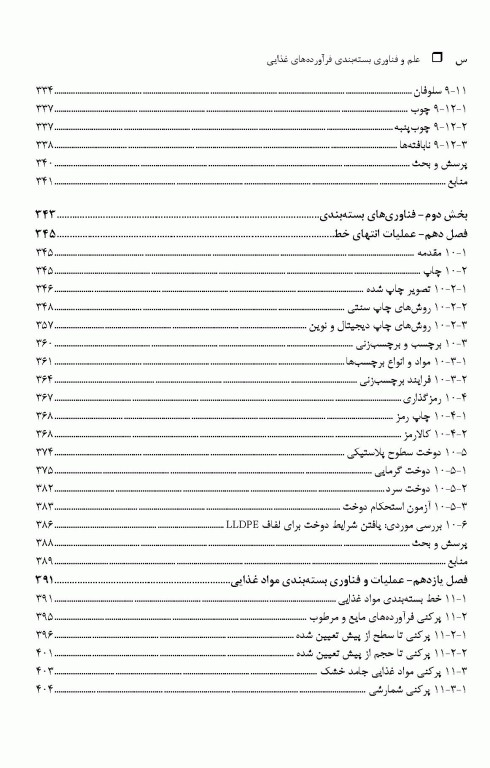 س ❒ علم و فناوری بسته‌بندی فرآورده‌های غذایی
۹-۱۱ سلوفان ۳۳۴
۹-۱۲-۱ چوب ۳۳۷
۹-۱۲-۲ چوب‌پنبه ۳۳۷
۹-۱۲-۳ نابافته‌ها ۳۳۸
پرسش و بحث ۳۴۰
منابع ۳۴۱
بخش دوم- فناوری‌های بسته‌بندی ۳۴۳
فصل دهم- عملیات انتهای خط ۳۴۵
۱۰-۱ مقدمه ۳۴۵
۱۰-۲ چاپ ۳۴۵
۱۰-۲-۱ تصویر چاپ شده ۳۴۶
۱۰-۲-۲ روش‌های چاپ سنتی ۳۴۸
۱۰-۲-۳ روش‌های چاپ دیجیتال و نوین ۳۵۷
۱۰-۳ برچسب و برچسب‌زنی ۳۶۰
۱۰-۳-۱ مواد و انواع برچسب‌ها ۳۶۱
۱۰-۳-۲ فرایند برچسب‌زنی ۳۶۴
۱۰-۴ رمزگذاری ۳۶۷
۱۰-۴-۱ چاپ رمز ۳۶۸
۱۰-۴-۲ کالارمز ۳۶۸
۱۰-۵ دوخت سطوح پلاستیکی ۳۷۴
۱۰-۵-۱ دوخت گرمایی ۳۷۵
۱۰-۵-۲ دوخت سرد ۳۸۲
۱۰-۵-۳ آزمون استحکام دوخت ۳۸۳
۱۰-۶ بررسی موردی: یافتن شرایط دوخت برای لفاف LLDPE ۳۸۶
پرسش و بحث ۳۸۸
منابع ۳۸۹
فصل یازدهم- عملیات و فناوری بسته‌بندی مواد غذایی ۳۹۱
۱۱-۱ خط بسته‌بندی مواد غذایی ۳۹۱
۱۱-۲ پرکنی فرآورده‌های مایع و مرطوب ۳۹۵
۱۱-۲-۱ پرکنی تا سطح از پیش تعیین شده ۳۹۶
۱۱-۲-۲ پرکنی تا حجم از پیش تعیین شده ۴۰۱
۱۱-۳ پرکنی مواد غذایی جامد خشک ۴۰۳
۱۱-۳-۱ پرکنی شمارشی ۴۰۴